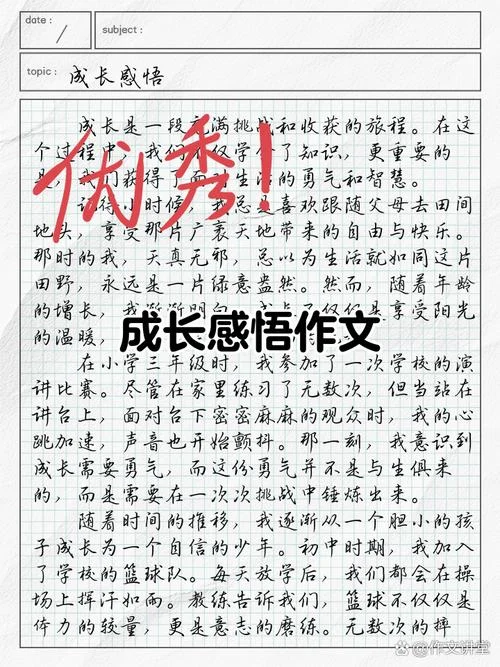 date:
subject:
topic: 成长感悟
成长是一段充满挑战和收获的旅程。在这
个过程中，我们不仅学会了知识，更重要的
是，我们获得了面对生活的勇气和智慧。
优秀！
记得小时候，我总是喜欢跟随父母去田间
地头，享受那片广袤天地带来的自由与快乐。
那时的我，天真无邪，总以为生活就如同这片
田野，永远是一片绿意盎然。然而，随着年龄
的增长，我渐渐明白，成长不仅仅是享受阳光
的温暖，
成长感悟作文
在小学三年级时，我参加了一次学校的演
讲比赛。尽管在家里练习了无数次，但当站在
讲台上，面对台下密密麻麻的观众时，我的心
跳加速，声音也开始颤抖。那一刻，我意识到
成长需要勇气，而这份勇气并不是与生俱来
的，而是需要在一次次挑战中锤炼出来。
随着时间的推移，我逐渐从一个胆小的孩
子成长为一个自信的少年。初中时期，我加入
了学校的篮球队。每天放学后，我们都会在操
场上挥汗如雨。教练告诉我们，篮球不仅仅是
体力的较量，更是意志的磨练。无数次的摔
作文讲堂